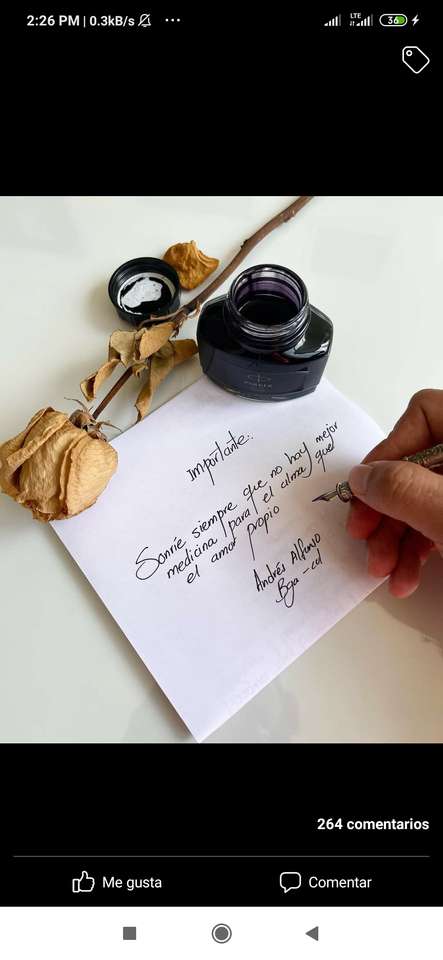 2:26 PM | 0.3kB/s
LTE
36
PARKER
Importante.
Sonríe siempre que no hay mejor
medicina para el alma, que
el amor propio
Andrés Alfonso
Bga - col
264 comentarios
Me gusta
Comentar